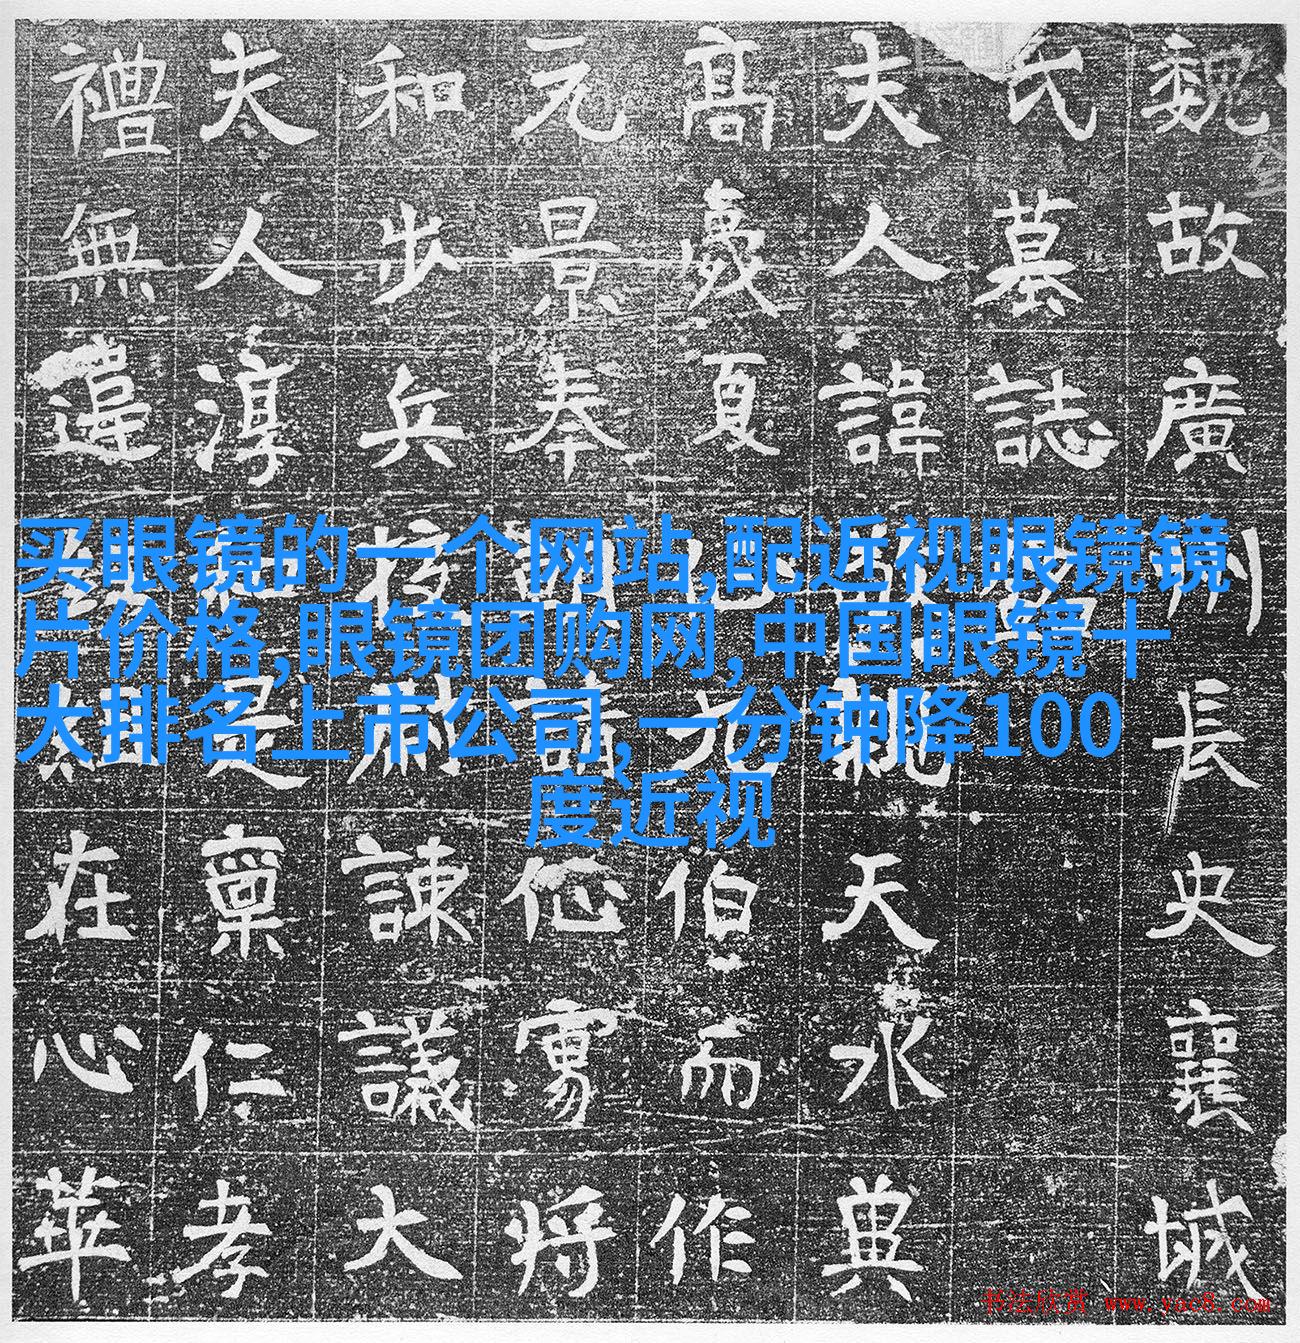 买眼镜的一个网站,配近视眼镜镜
片价格,眼镜团购网,中国眼镜十
大排名上市公司,一分钟降100
度近视
魏故廣州長史襄城
氏墓誌
夫人諱天水
高夏伯而作
元景奉請将
和步兵校尉諫議大
夫人淳是稟仁孝
禮無違在心華
书法欣赏 www.yac8.com